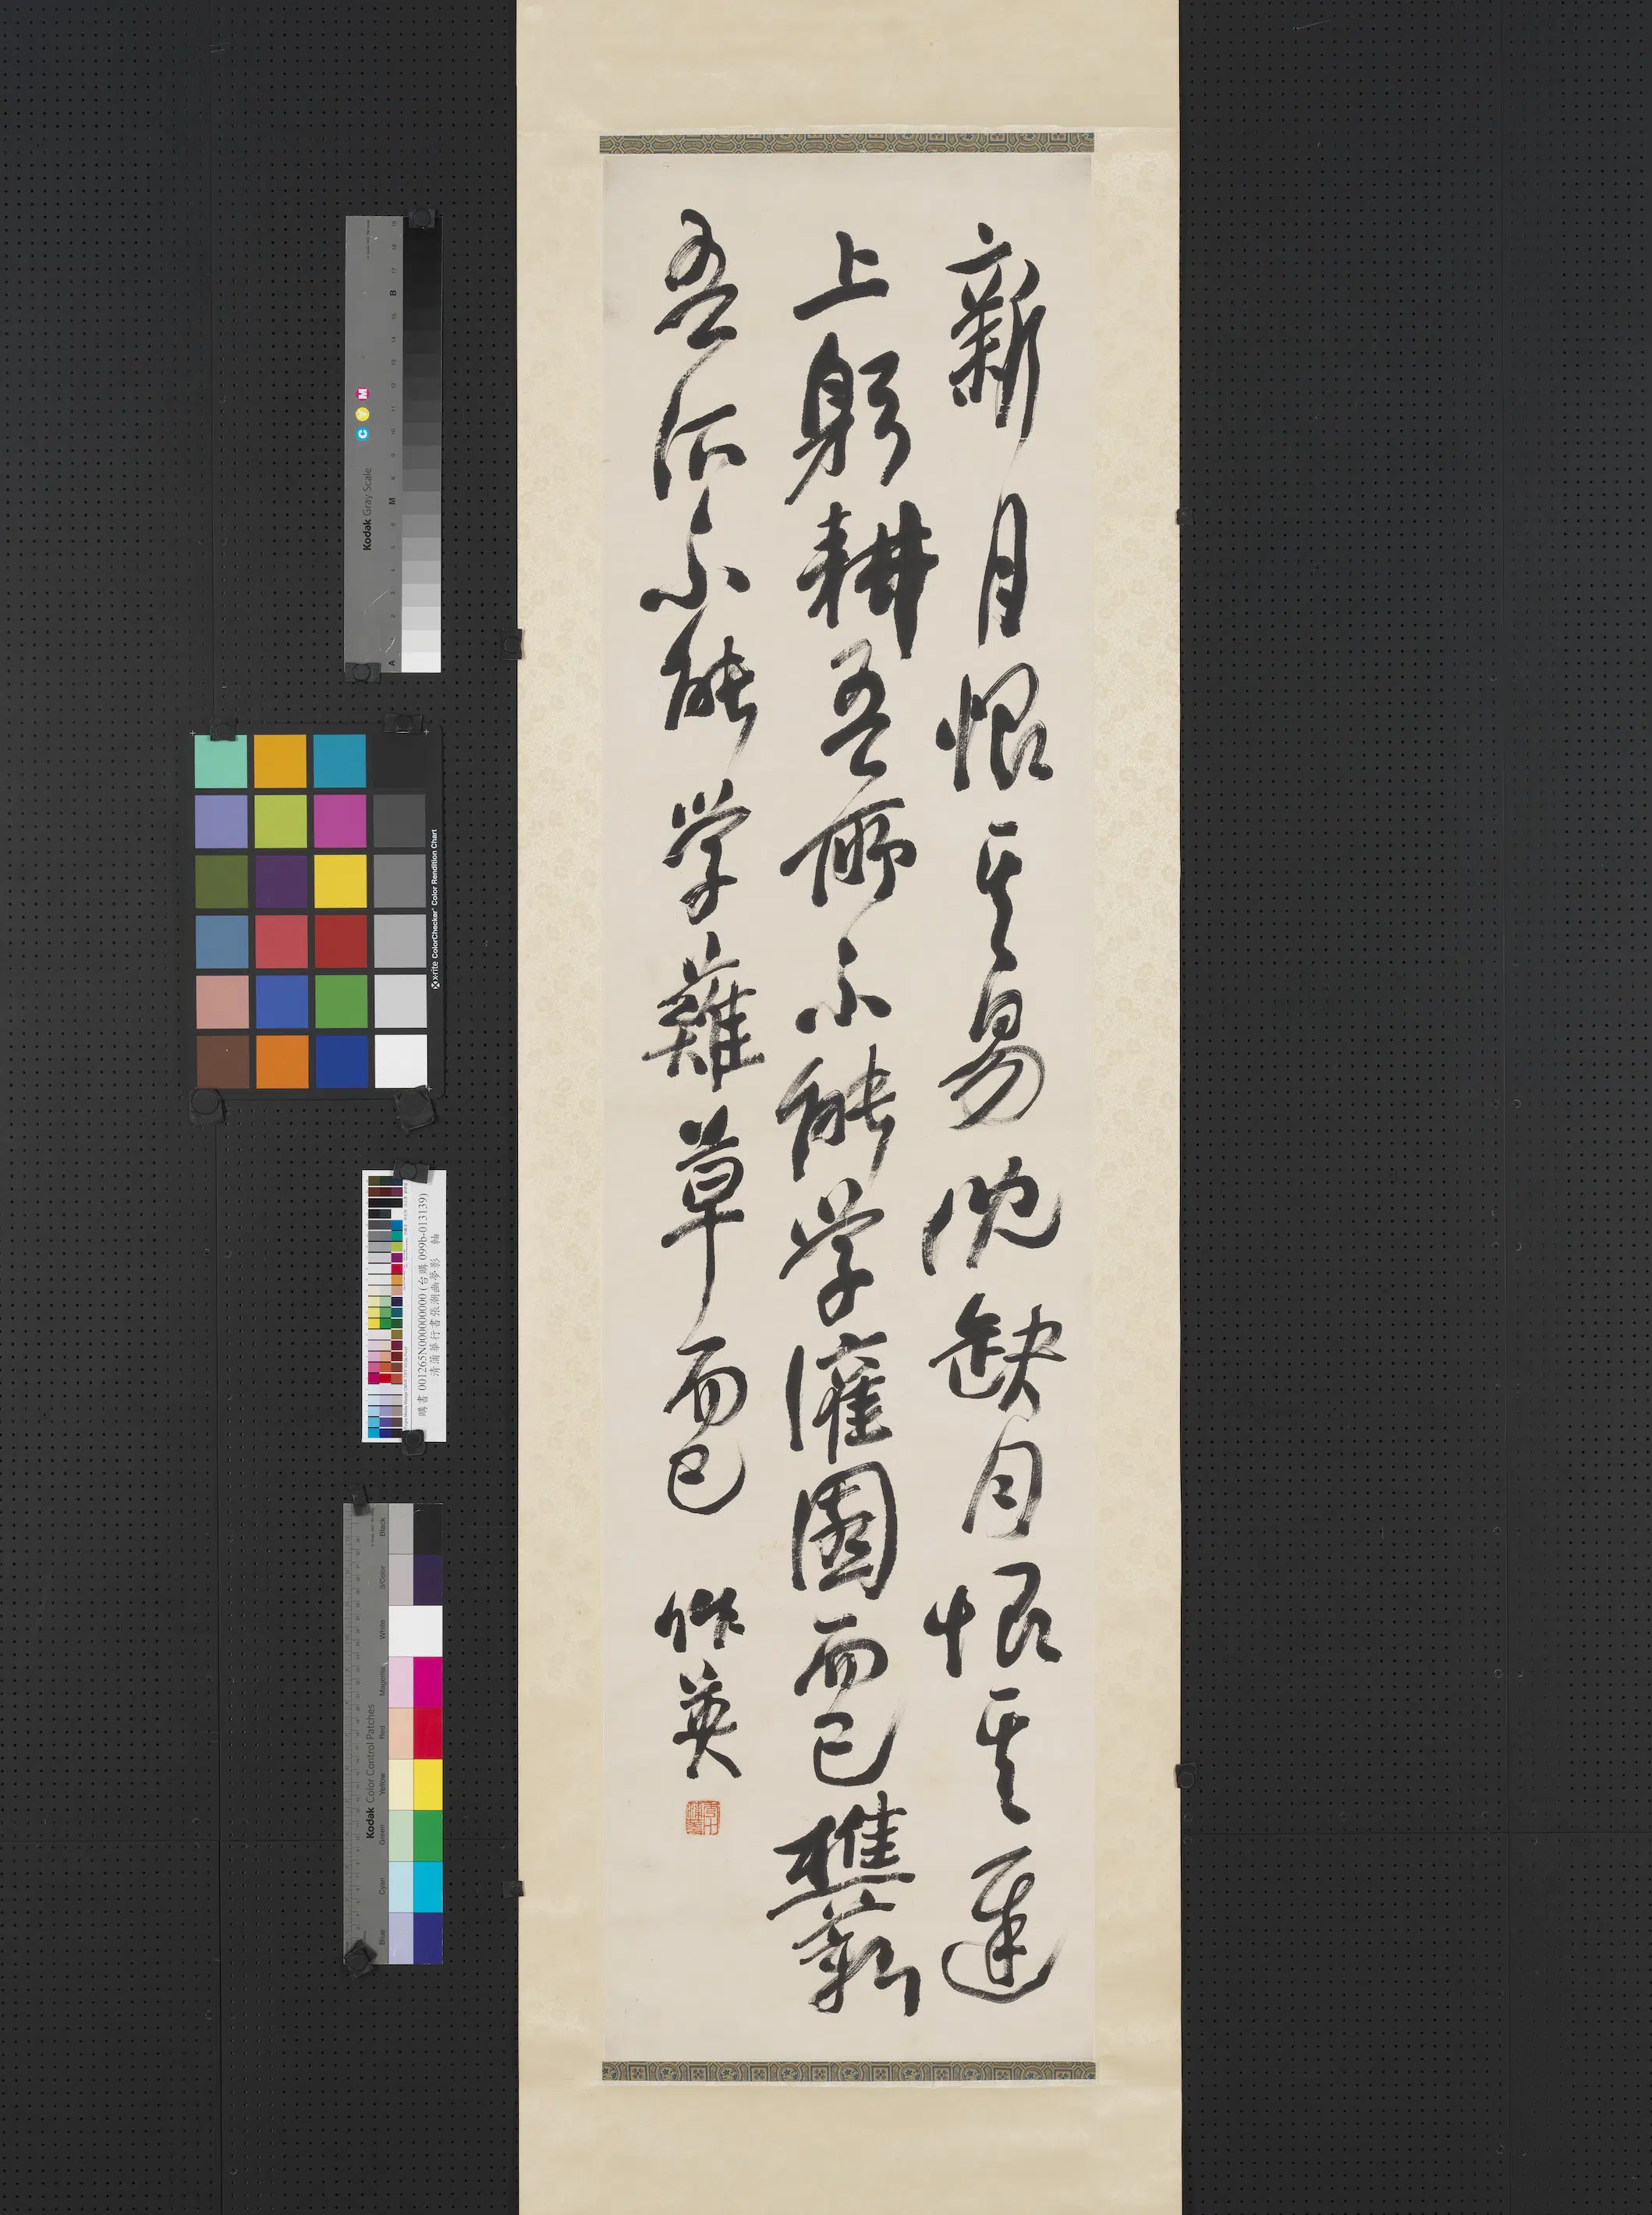 新月恨其易沈缺月恨其遲
上躬耕吾所不能學灌園而已樵薪
吾所不能學薙草而已 作英
Kodak Gray Scale
C Y M
A
M
B
x-rite ColorChecker Color Rendition Chart
購書 001265N000000000 (台購 099b-013139)
清蒲華行書張潮幽夢影 軸
Kodak Color Control Patches
Blue
Cyan
Green
Yellow
Red
Magenta
White
3/Color
Black